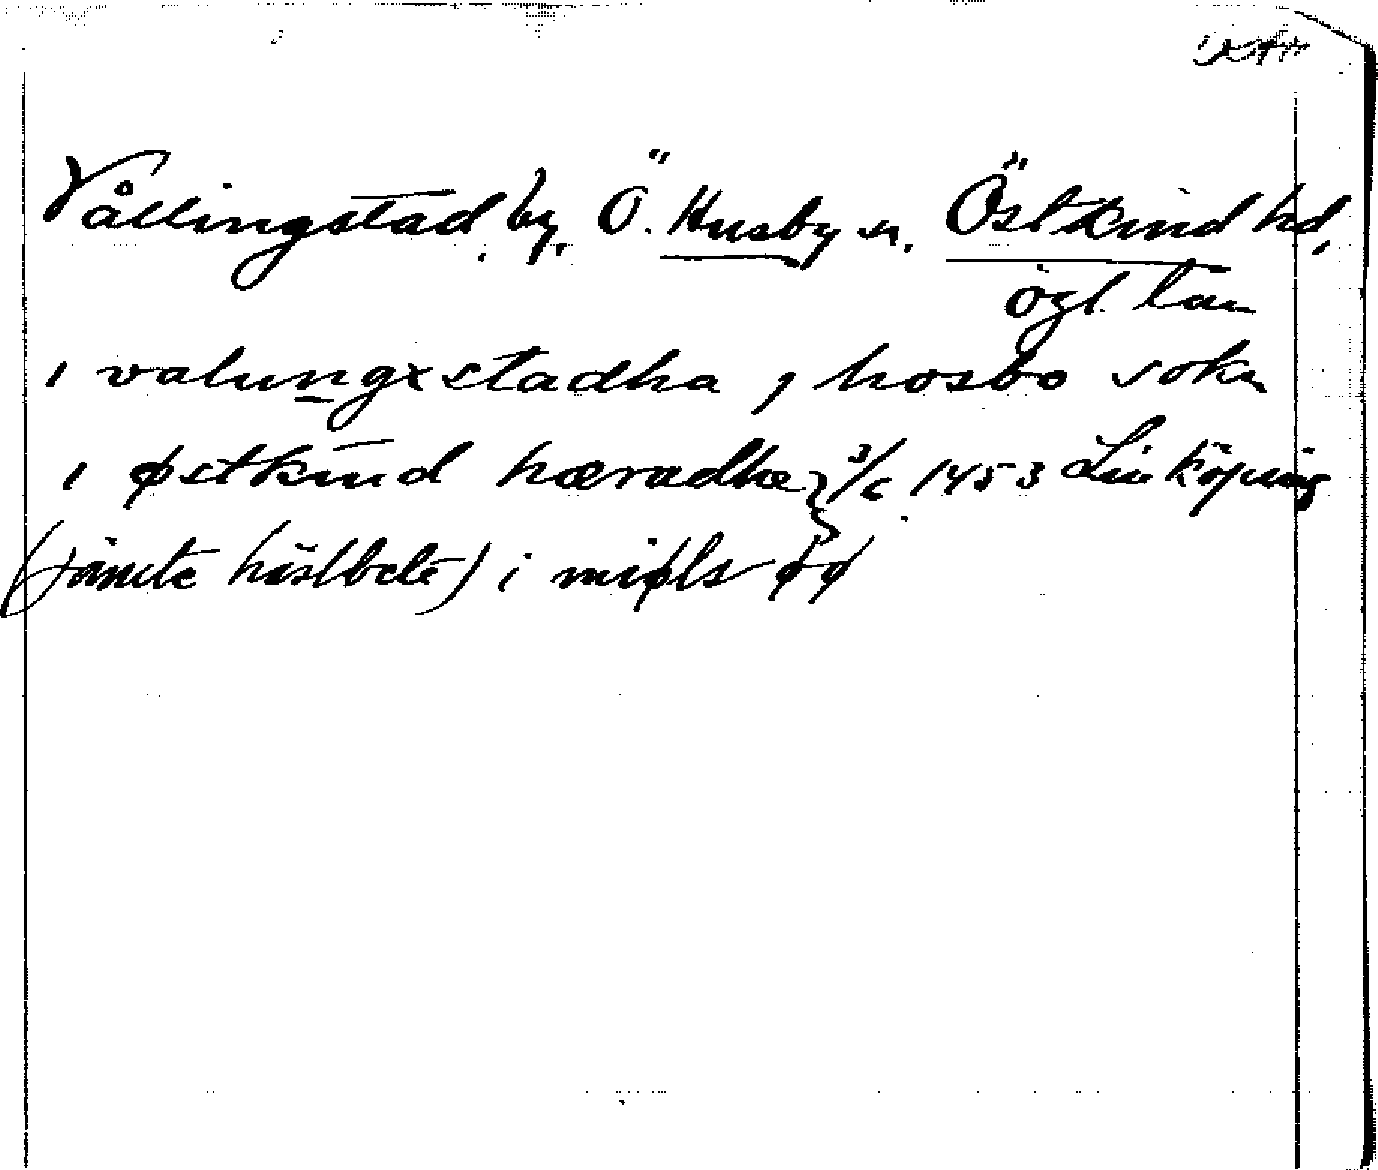 Vållingstad, by, Ö. Husby sn. Östkind hd,
ögl. lan
i valungxstadha, hosbo sokn
i østkind hæradhe 3/6 1453 Linköping
(jämte hästbete) i miøls øø